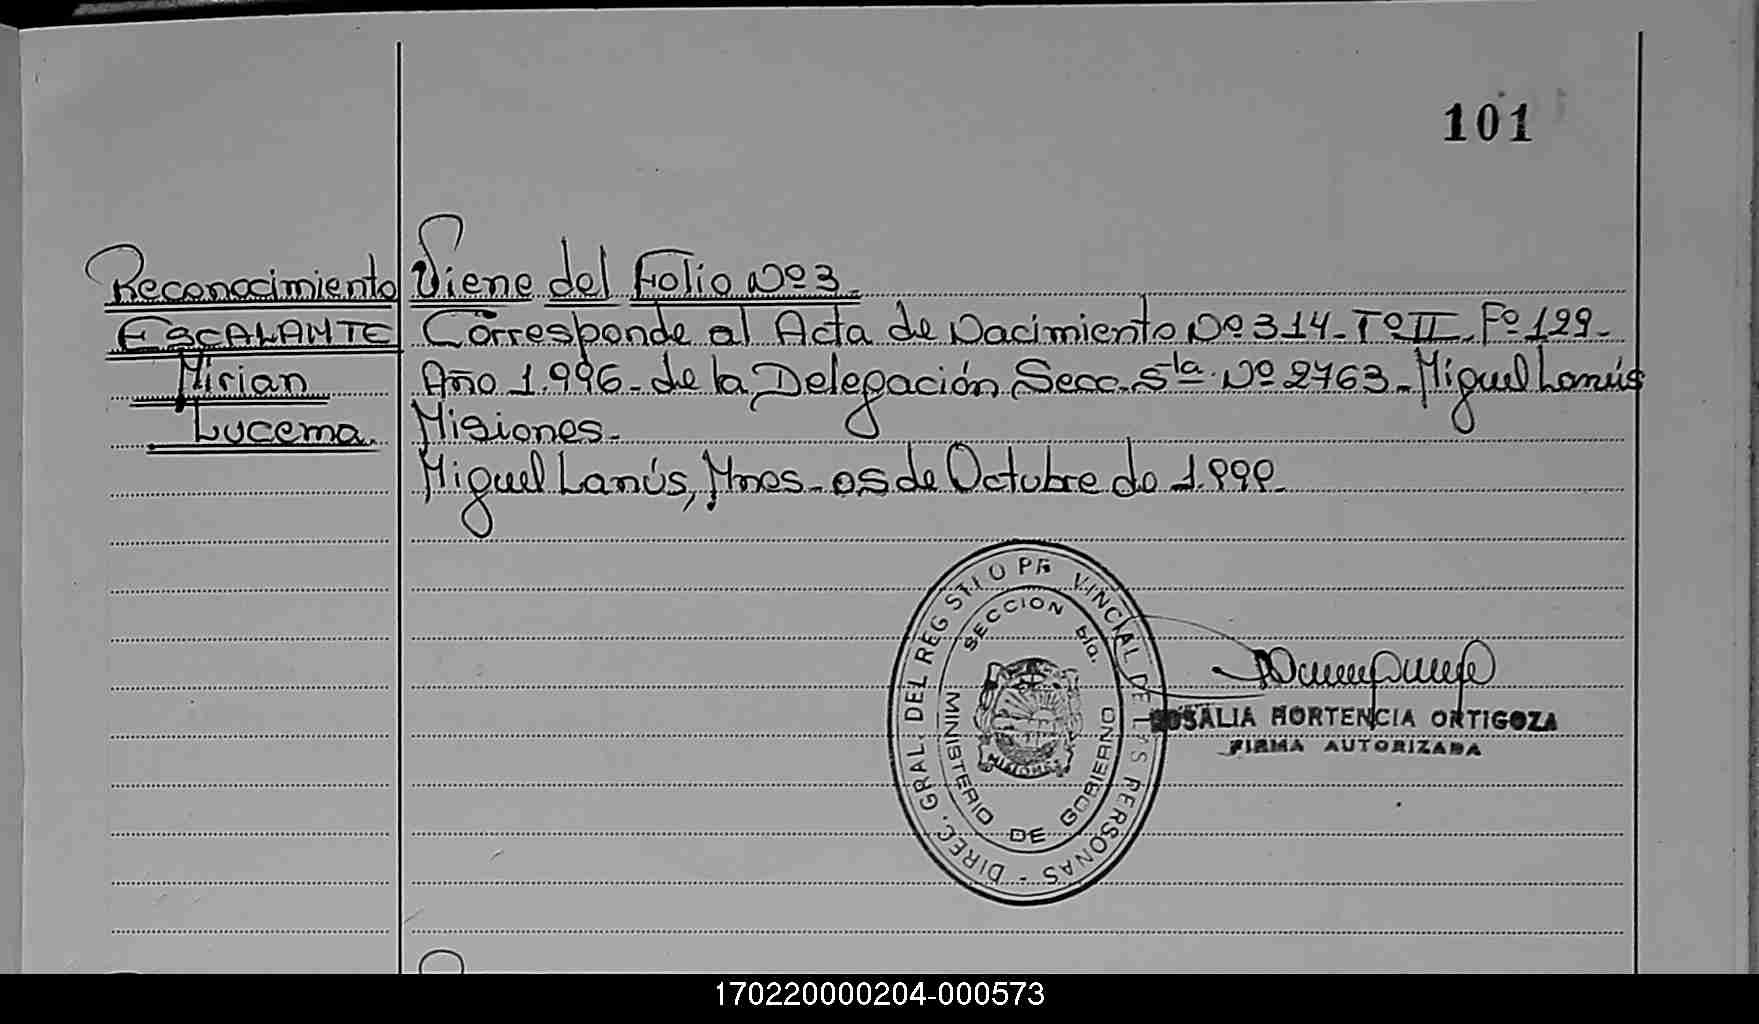 101
Reconocimiento
ESCALANTE
Mirian
Lucema.
Viene del Folio Nº 3.
Corresponde al Acta de Nacimiento Nº 314- Tº II. Fº 129-
Año 1.996- de la Delegación Secc. 5ta. Nº 2763- Miguel Lanús
Misiones-
Miguel Lanús, Mnes- 05 de Octubre de 1.999-
DIREC. GRAL. DEL REGISTRO PROVINCIAL DE LAS PERSONAS -
SECCION 5ta.
MINISTERIO DE GOBIERNO
MISIONES
ROSALIA HORTENCIA ORTIGOZA
FIRMA AUTORIZADA
170220000204-000573